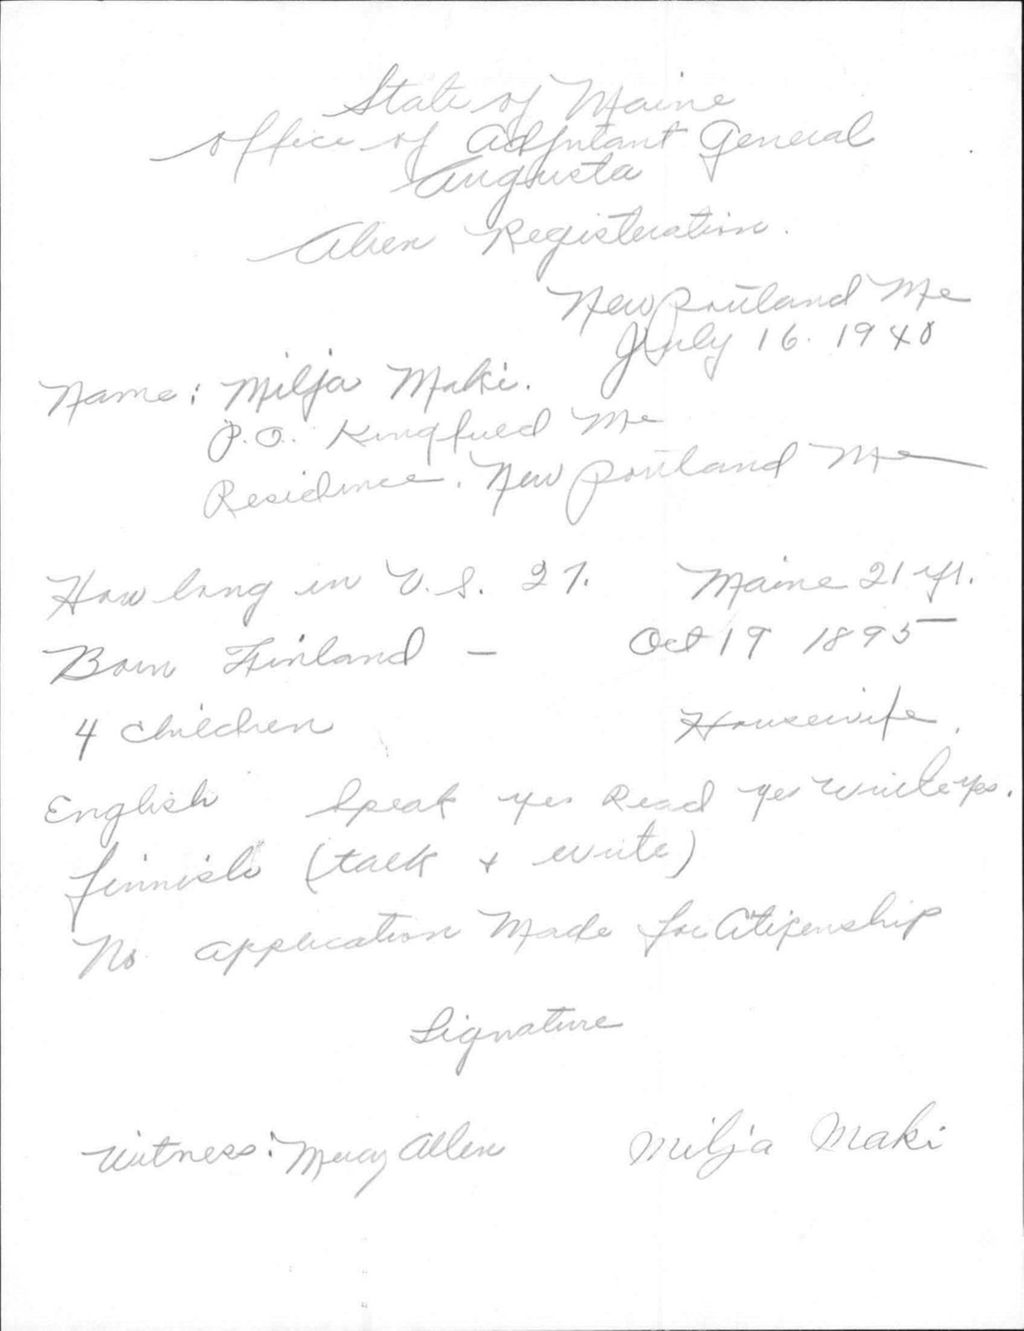 State of Maine
Office of Adjutant General
Augusta
Alien Registeration.
New Portland Me
July 16. 1940
Name: Milja Maki.
P.O. Kingfield Me
Residence. New Portland Me
How long in U.S. 27. Maine 21 yr.
Born Finland - Oct 19 1895
4 Children Housewife.
English Speak yes Read yes Write yes.
finnish (talk + write)
No application Made for Citizenship
Signature
Witness: Mercy Allen Milja Maki